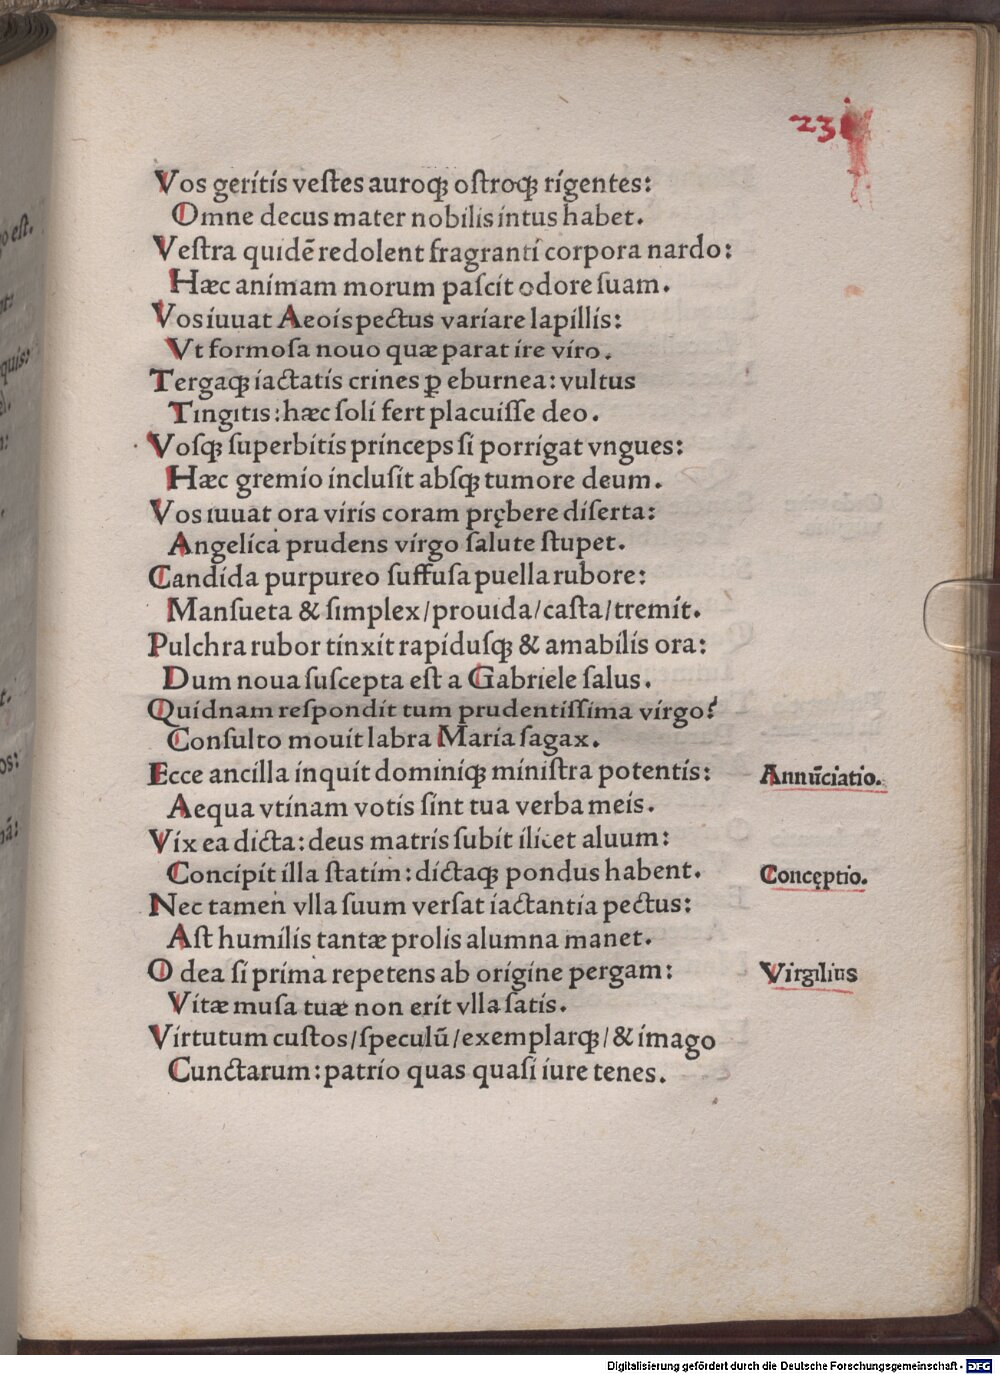 23
Vos geritis vestes auroqꝫ ostroqꝫ rigentes:
Omne decus mater nobilis intus habet.
Vestra quidē redolent fragranti corpora nardo:
Hæc animam morum pascit odore suam.
Vos iuuat Aeois pectus variare lapillis:
Vt formosa nouo quæ parat ire viro.
Tergaqꝫ iactatis crines ꝑ eburnea: vultus
Tingitis: hæc soli fert placuisse deo.
Vosqꝫ superbitis princeps si porrigat vngues:
Hæc gremio inclusit absqꝫ tumore deum.
Vos iuuat ora viris coram prębere diserta:
Angelica prudens virgo salute stupet.
Candida purpureo suffusa puella rubore:
Mansueta & simplex/prouida/casta/tremit.
Pulchra rubor tinxit rapidusqꝫ & amabilis ora:
Dum noua suscepta est a Gabriele salus.
Quidnam respondit tum prudentissima virgo?
Consulto mouit labra Maria sagax.
Ecce ancilla inquit dominiqꝫ ministra potentis: Annūciatio.
Aequa vtinam votis sint tua verba meis.
Vix ea dicta: deus matris subit ilicet aluum:
Concipit illa statim: dictaqꝫ pondus habent. Concęptio.
Nec tamen vlla suum versat iactantia pectus:
Ast humilis tantæ prolis alumna manet.
O dea si prima repetens ab origine pergam: Virgilius
Vitæ musa tuæ non erit vlla satis.
Virtutum custos/speculū/exemplarqꝫ/& imago
Cunctarum: patrio quas quasi iure tenes.
Digitalisierung gefördert durch die Deutsche Forschungsgemeinschaft - DFG